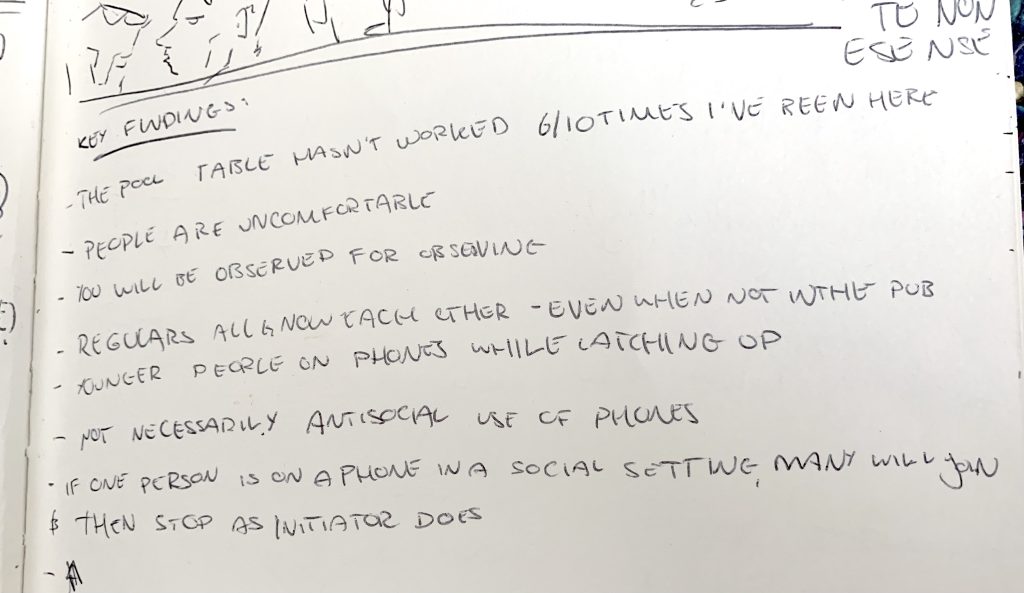 TE NON
ESE NSE
KEY FINDINGS:
- THE POOL TABLE HASN'T WORKED 6/10 TIMES I'VE BEEN HERE
- PEOPLE ARE UNCOMFORTABLE
- YOU WILL BE OBSERVED FOR OBSERVING
- REGULARS ALL KNOW EACH OTHER - EVEN WHEN NOT IN THE PUB
- YOUNGER PEOPLE ON PHONES WHILE CATCHING UP
- NOT NECESSARILY ANTISOCIAL USE OF PHONES
- IF ONE PERSON IS ON A PHONE IN A SOCIAL SETTING, MANY WILL JOIN
& THEN STOP AS INITIATOR DOES
-